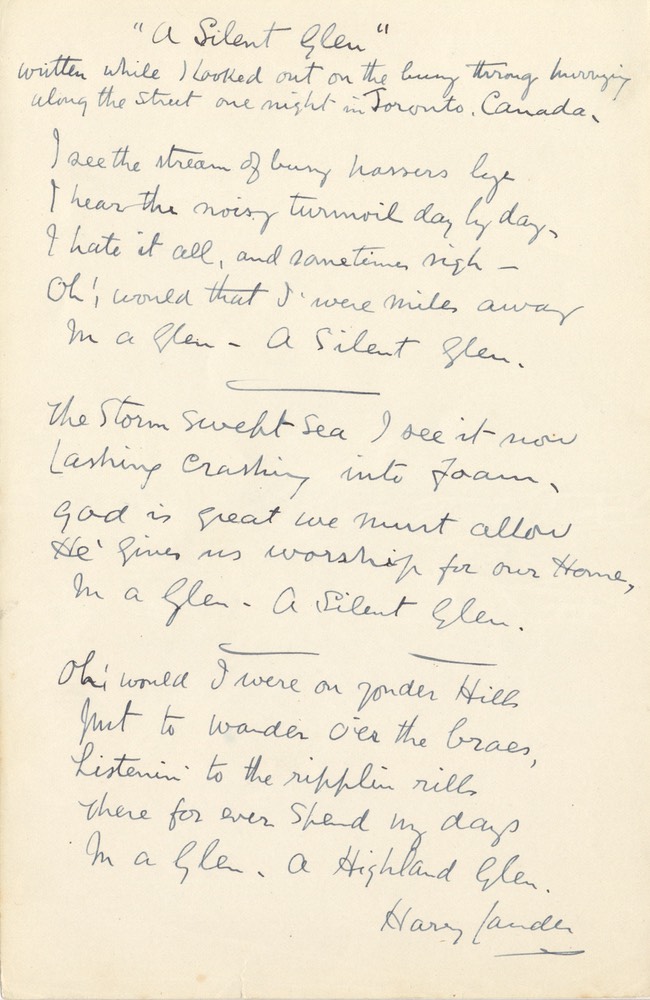 "A Silent Glen"
written while I looked out on the busy throng hurrying
along the street one night in Toronto, Canada.
I see the stream of busy passers bye
I hear the noisy turmoil day by day,
I hate it all, and sometimes sigh –
Oh! would that I were miles away
In a Glen – A Silent Glen.
The Storm swept Sea I see it now
Lashing Crashing into Foam,
God is great we must allow
He gives us worship for our Home,
In a Glen - A Silent Glen.
Oh! would I were on yonder Hills
Just to wander O'er the braes,
Listenin' to the ripplin rills
There for ever Spend my days
In a Glen. A Highland Glen.
Harry Lauder